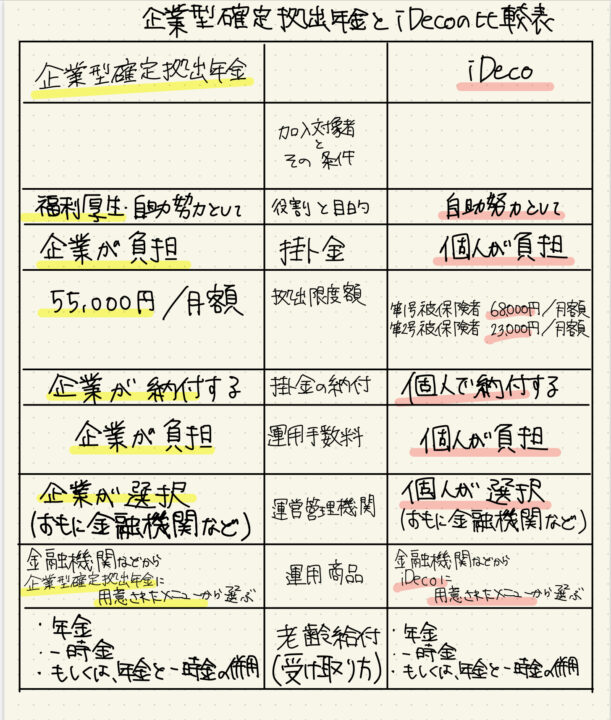 企業型確定拠出年金とiDecoの比較表
企業型確定拠出年金
iDeco
加入対象者
と
その条件
福利厚生・自助努力として
役割と目的
自助努力として
企業が負担
掛け金
個人が負担
55,000円/月額
拠出限度額
第1号被保険者 68,000円/月額
第2号被保険者 23,000円/月額
企業が納付する
掛金の納付
個人で納付する
企業が負担
運用手数料
個人が負担
企業が選択
(おもに金融機関など)
運営管理機関
個人が選択
(おもに金融機関など)
金融機関などから
企業型確定拠出年金に
用意されたメニューから選ぶ
運用商品
金融機関などから
iDecoに
用意されたメニューから選ぶ
・年金
・一時金
・もしくは、年金と一時金の併用
老齢給付
(受け取り方)
・年金
・一時金
・もしくは、年金と一時金の併用